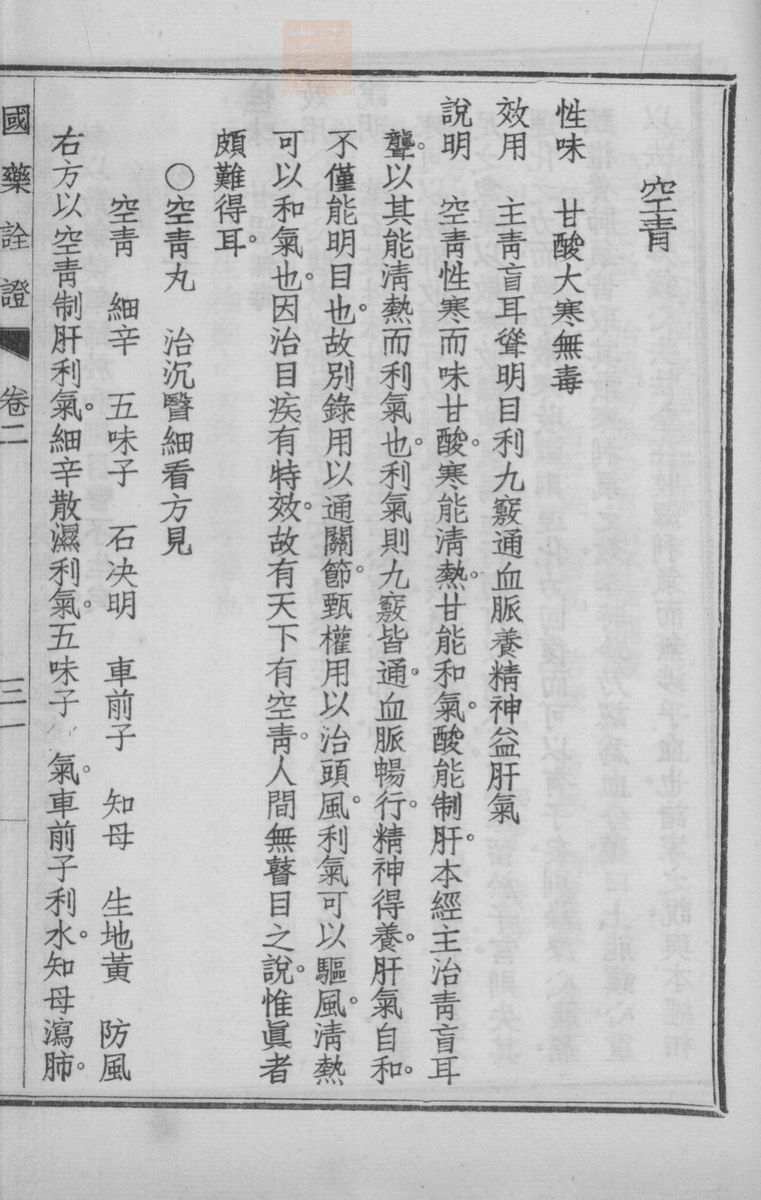 空青
性味　甘酸大寒無毒
效用　主靑盲耳聳明目利九竅通血脈養精神益肝氣
說明　空靑性寒而味甘酸。寒能淸熱。甘能和氣。酸能制肝。本經主治靑盲耳
聾。以其能淸熱而利氣也。利氣則九竅皆通。血脈暢行。精神得養。肝氣自和。
不僅能明目也。故別錄用以通關節。甄權用以治頭風。利氣可以驅風。淸熱
可以和氣也。因治目疾有特效。故有天下有空靑。人間無瞽目之說。惟眞者
頗難得耳。
○空靑丸　治沉翳細看方見
空靑　細辛　五味子　石决明　車前子　知母　生地黃　防風
右方以空靑制肝利氣。細辛散濕利氣。五味子　氣。車前子利水。知母瀉肺。
國藥詮證　卷二　三一